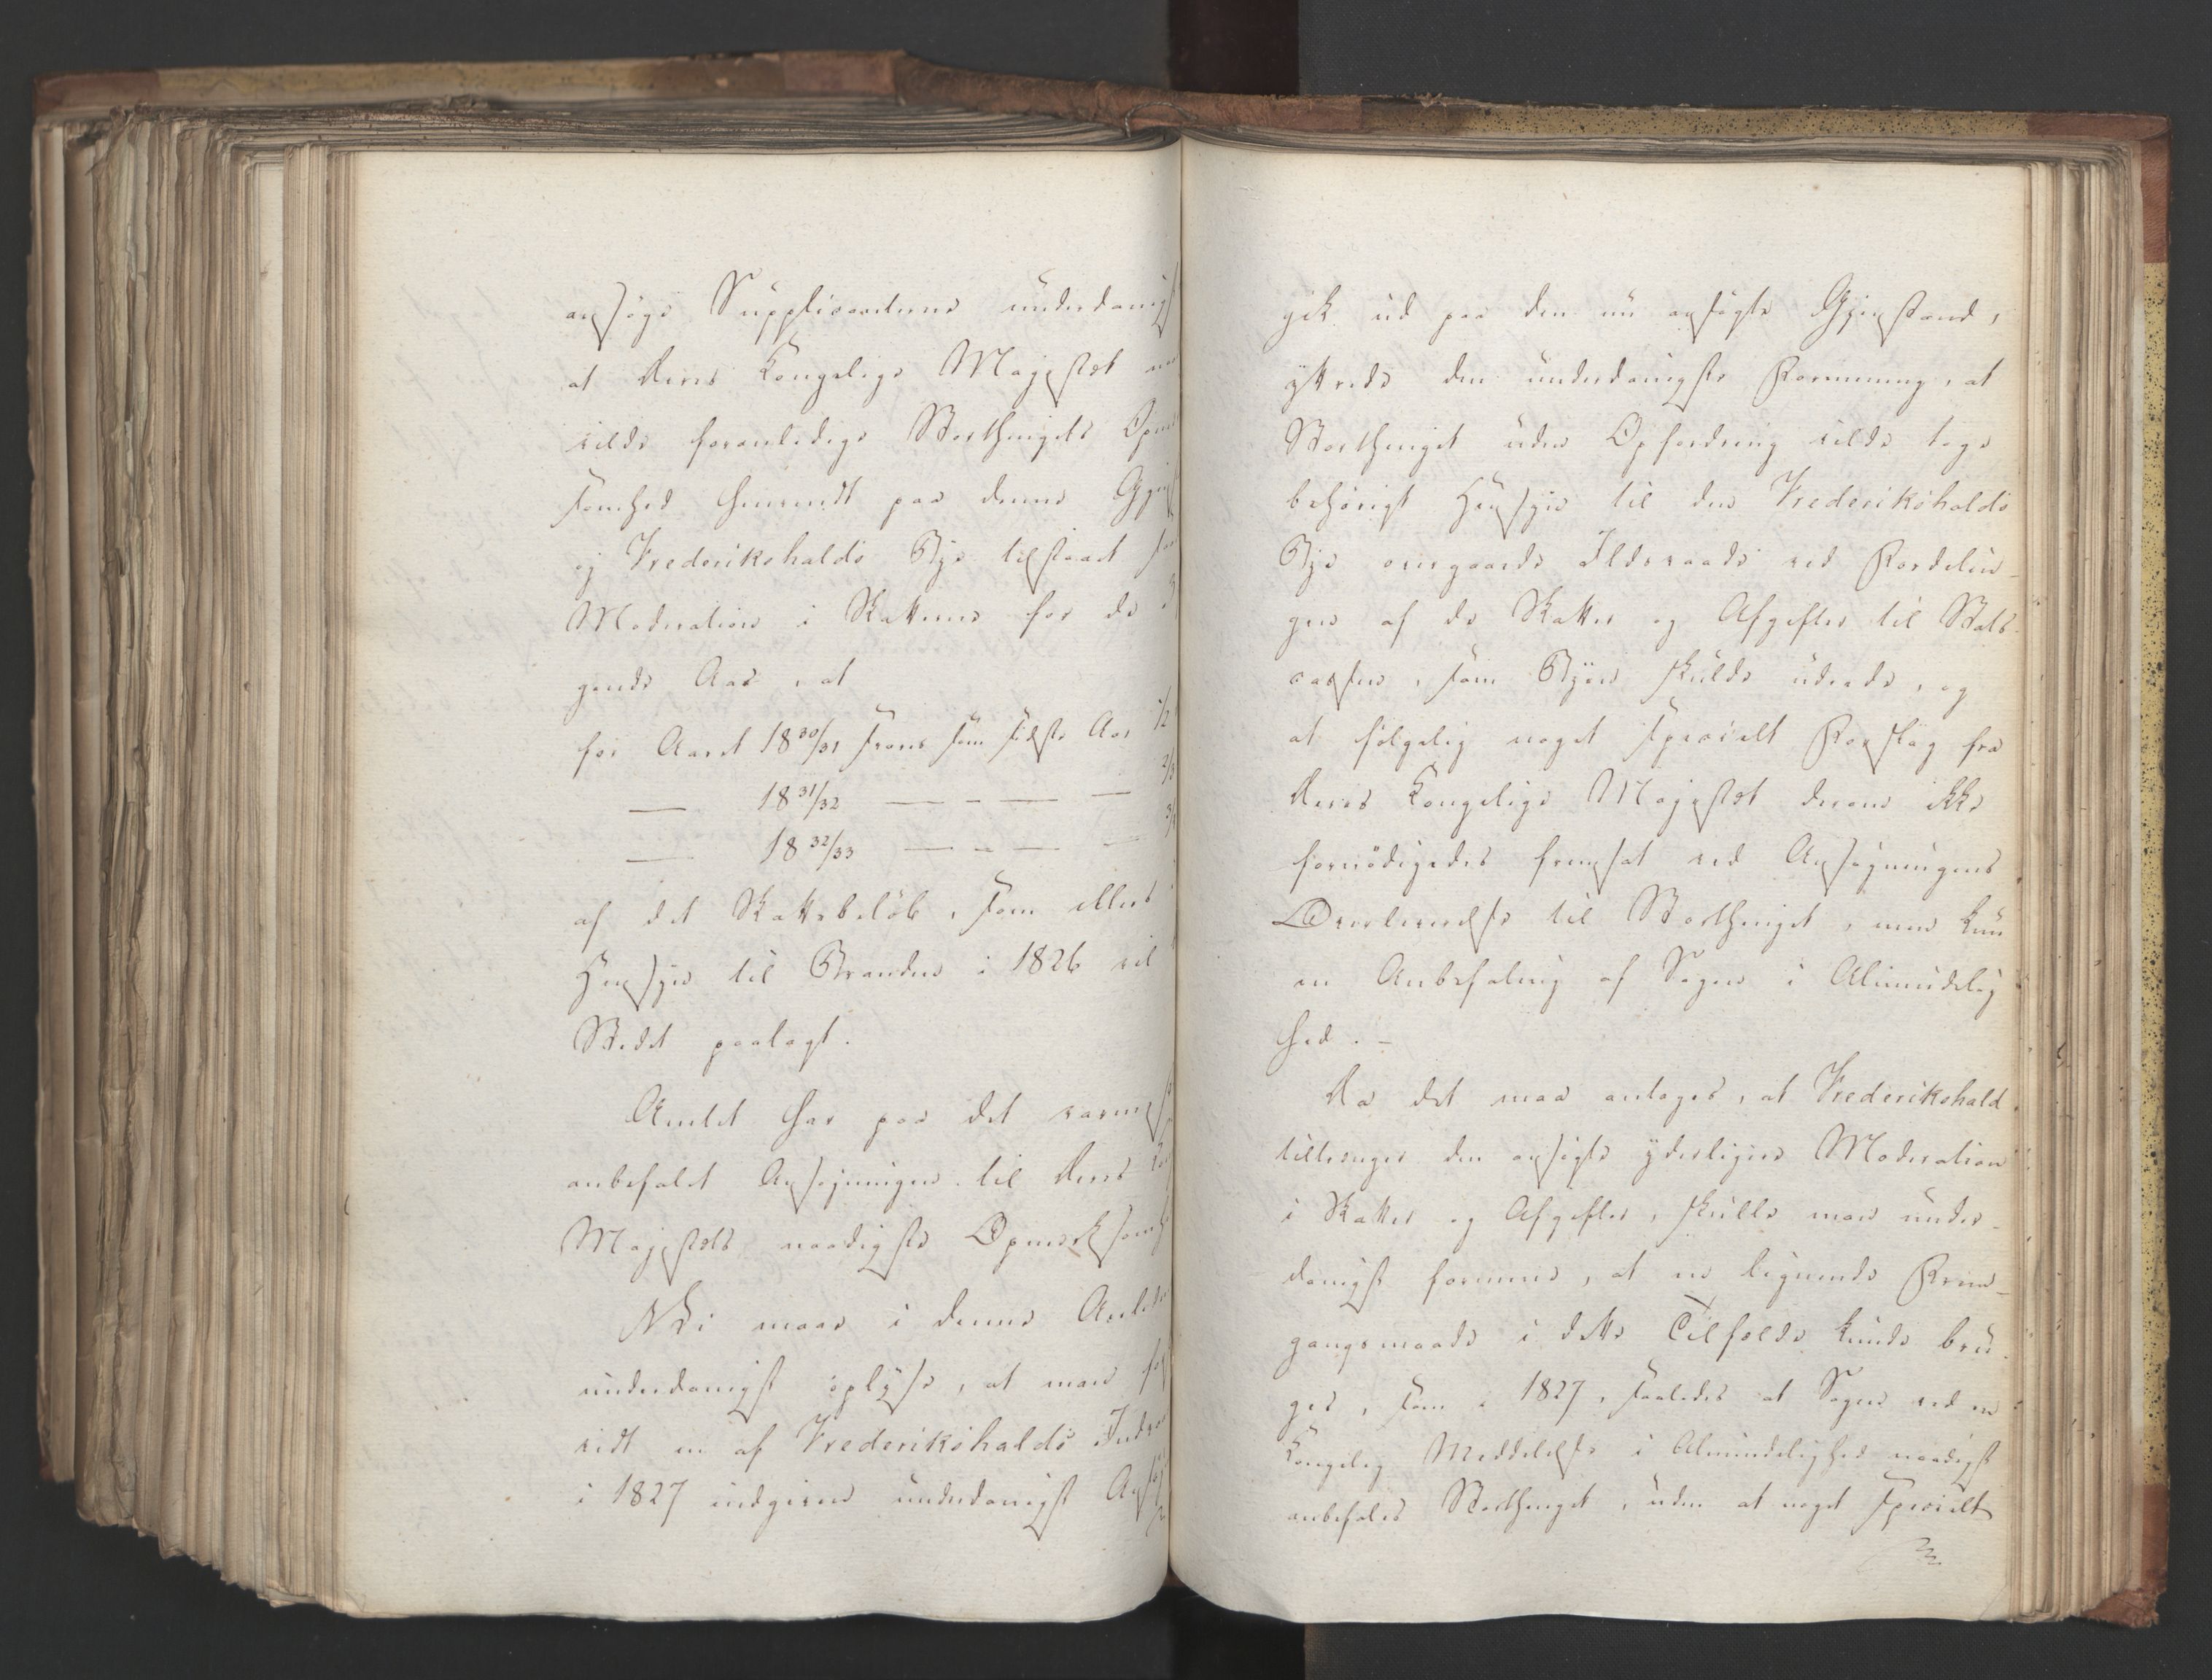 ansøge Supplicanterne underdanigst
at Deres Kongelige Majestæt
vilde foranledige Storthingets
somhed henvendt paa denne
og Frederikshalds Bye tilstaaet
Moderation i Skatterne for de 3
gende Aar, at
for Aaret 18 30/31 svares som sidste Aar 1/2
— 18 31/32 — - — — 2/3
— 18 32/33 — - — — 3/4
af det Skattebeløb, som ellers
Hensyn til Branden i 1826 vil
Stedet paalagt.
Amtet har paa det varmeste
anbefalet Ansøgningen til Deres
Majestæts naadigste Opmærksomh
Vi maae i denne
underdanigst oplyse, at man
vidt en af Frederikshalds
i 1827 indgiven underdanigst
gik ud paa den nu ansøgte Gjenstand,
yttrede den underdanigste Formening, at
Storthinget uden Opfordring vilde tage
behørigt Hensyn til den Frederikshalds
Bye overgaaede Ildsvaade ved Fordelin-
gen af de Skatter og Afgifter til Stats-
cassen, som Byen skulde udrede, og
at følgelig noget specielt Forslag fra
Deres Kongelige Majestæt derom ikke
fornødigedes fremsat ved Ansøgningens
Overleverelse til Storthinget, men kun
en Anbefaling af Sagen i Almindelig
hed. -
Da det maa antages, at Frederikshald
tiltrænger den ansøgte yderligere Moderation
i Skatter og Afgifter, skulle man under-
danigst formene, at en lignende Frem-
gangsmaade i dette Tilfælde kunde bru-
ges, som i 1827, saaledes at Sagen ved en
Kongelig Meddelelse i Almindelighed naadigst
anbefales Storthinget, uden at noget specielt